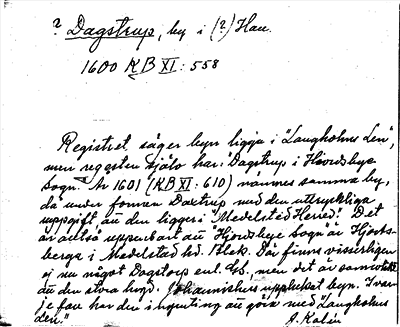 ? Dagstrup, by i (?) Hau.
1600 KB XI: 558
Registret säger byn ligga i "Langholms Len",
men regesten själv har: Dagstrup i Hiordsbye
Sogn. År 1601 (KB XI: 610) nämnes samma by,
då under formen Daxtrup med den uttryckliga
uppgift att den ligger i "Medelsted Herred". Det
är alltså uppenbart att "Hjordsbye Sogn" är Hjorts-
berga i Medelstad hd. Blek. Där finns visserligen
ej nu något Dagstorp enl. GS, men det är
att den stora högd. Johannishus uppslukat byn. I var-
je fall har den ingenting att göra med "Langholms
Len."
A. Kalén